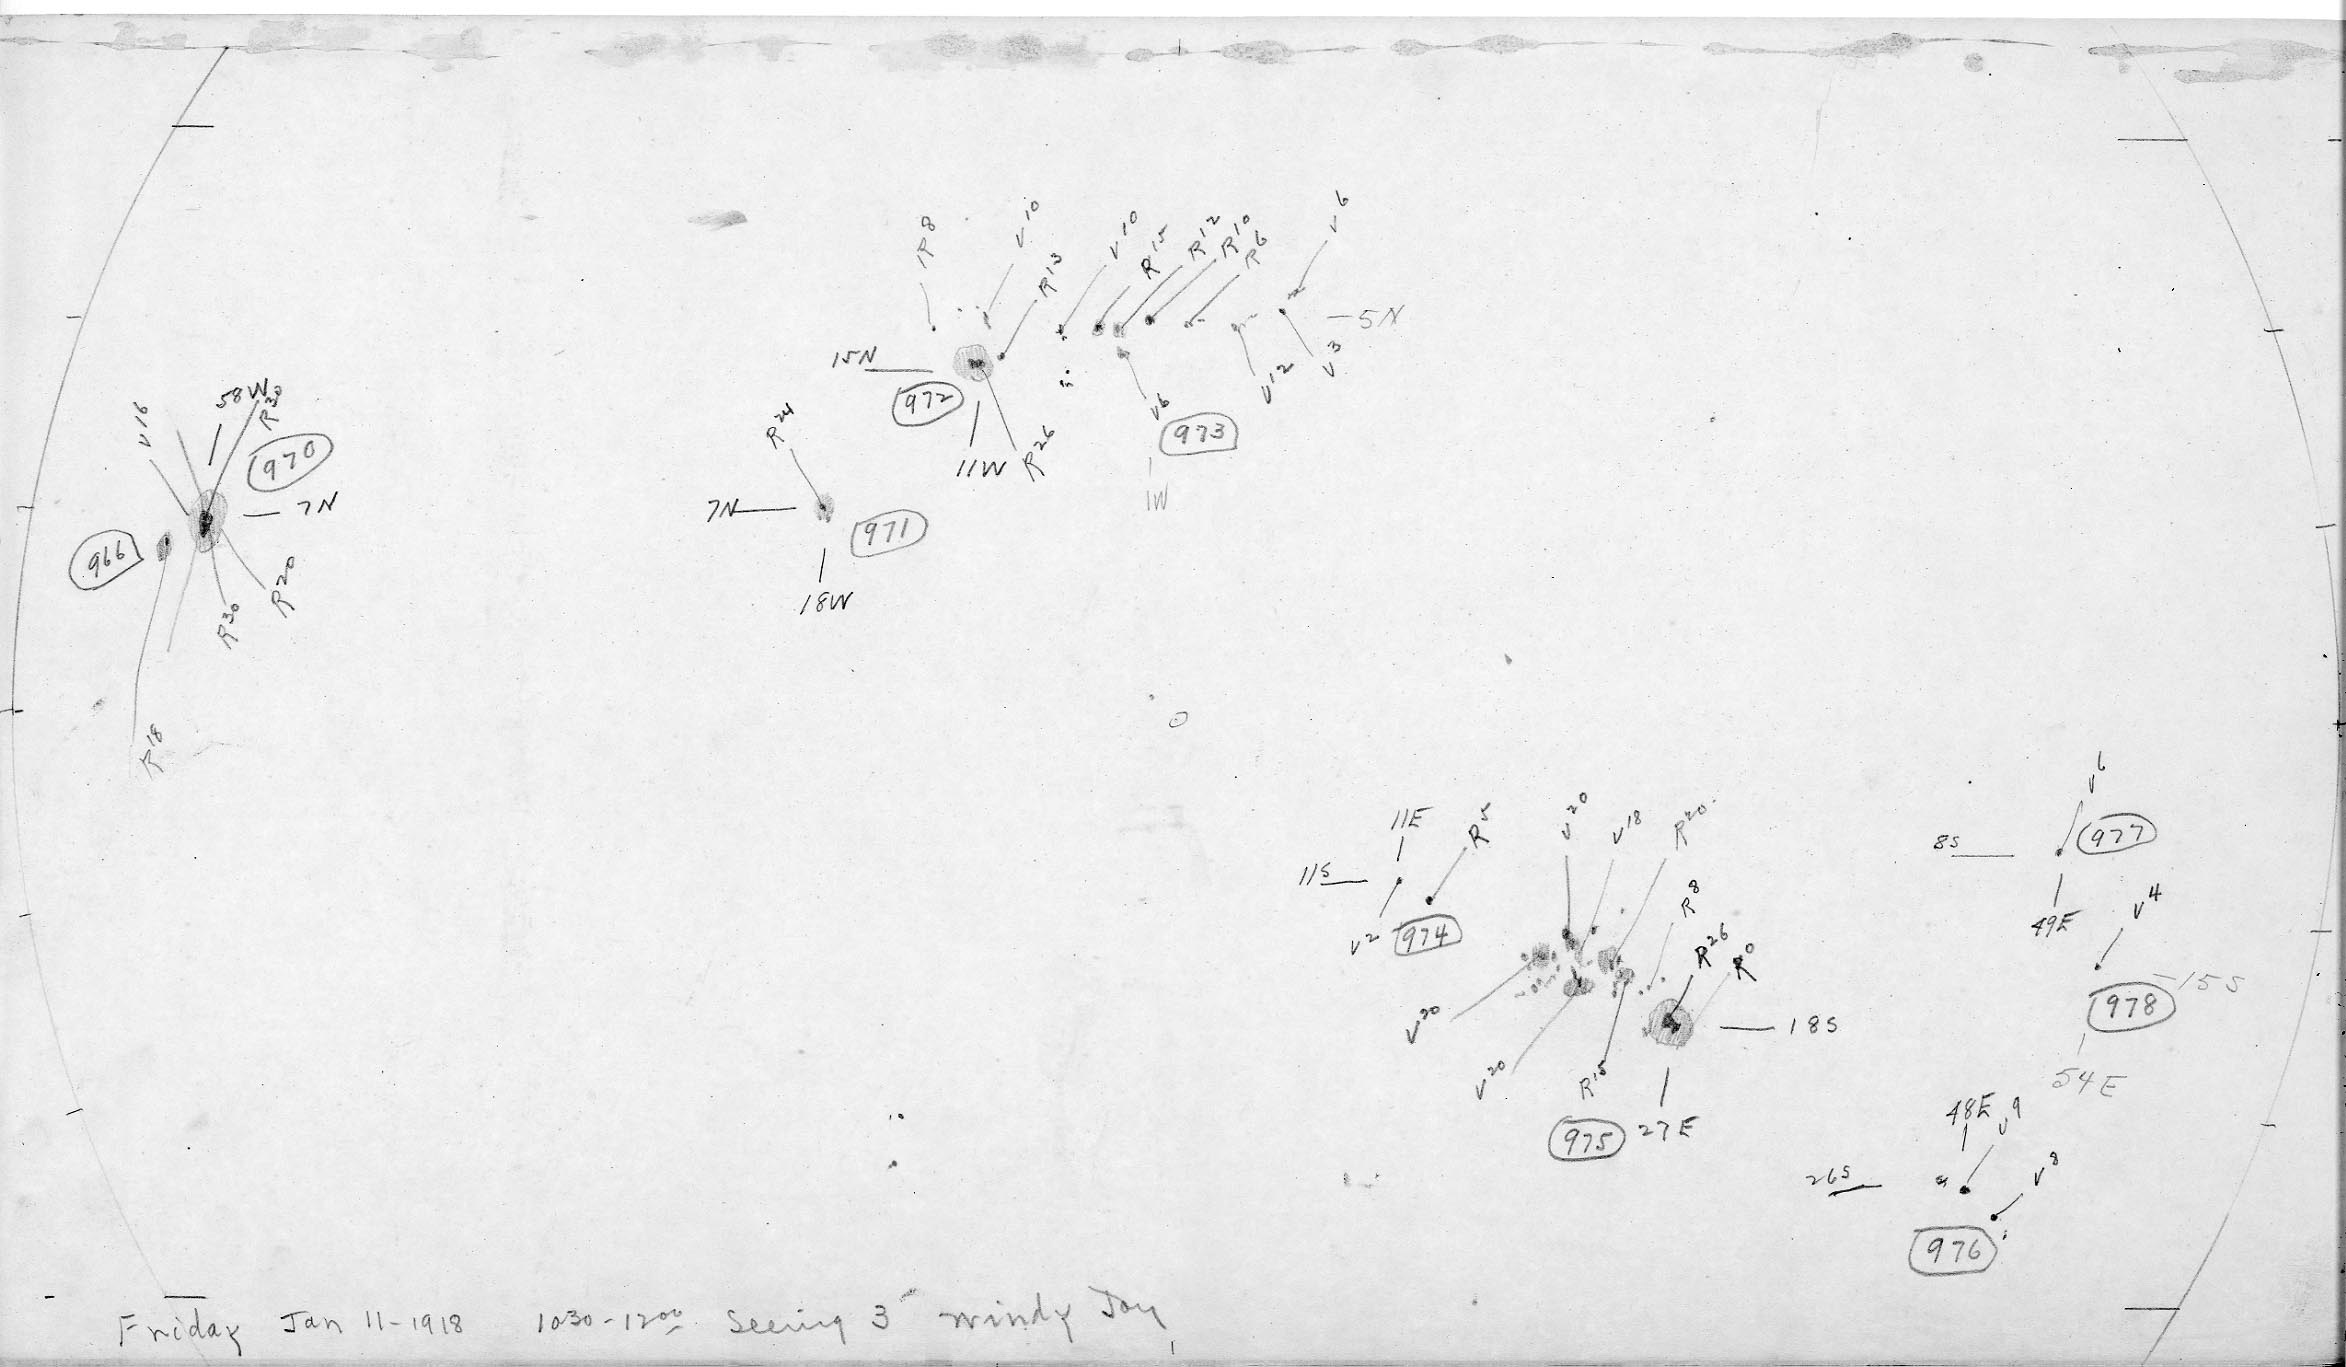 R8 V10 V10 V6
R13 R15 R12 R10 R6
5N
15N
972
V12 V3
V6
973
11W R26
1W
58W
V16 R30
970
7N
966
R30 R20
R18
R24
7N
971
18W
11E R5
11S
V2 974
V20 V18 R20
R8
R26 R0
V20
18S
V20 R15
975 27E
V6
8S 977
49E
V4
15S
978
54E
48E V9
26S V8
976
Friday Jan 11-1918 1030-1200 Seeing 3 Windy